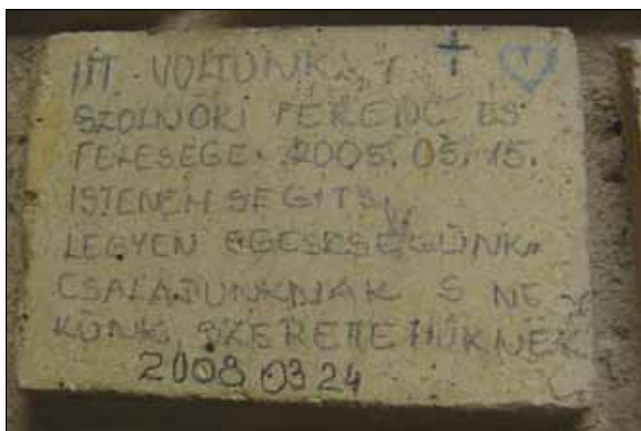 ITT VOLTUNK
SZOLNOKI FERENC ÉS
FELESÉGE. 2005. 05. 15.
ISTENEM SEGITS,
LEGYEN EGESSEGÜNK.
CSALADUNKNAK S NE
KÜNK, SZERETETTÜKNEK
2008 03 24